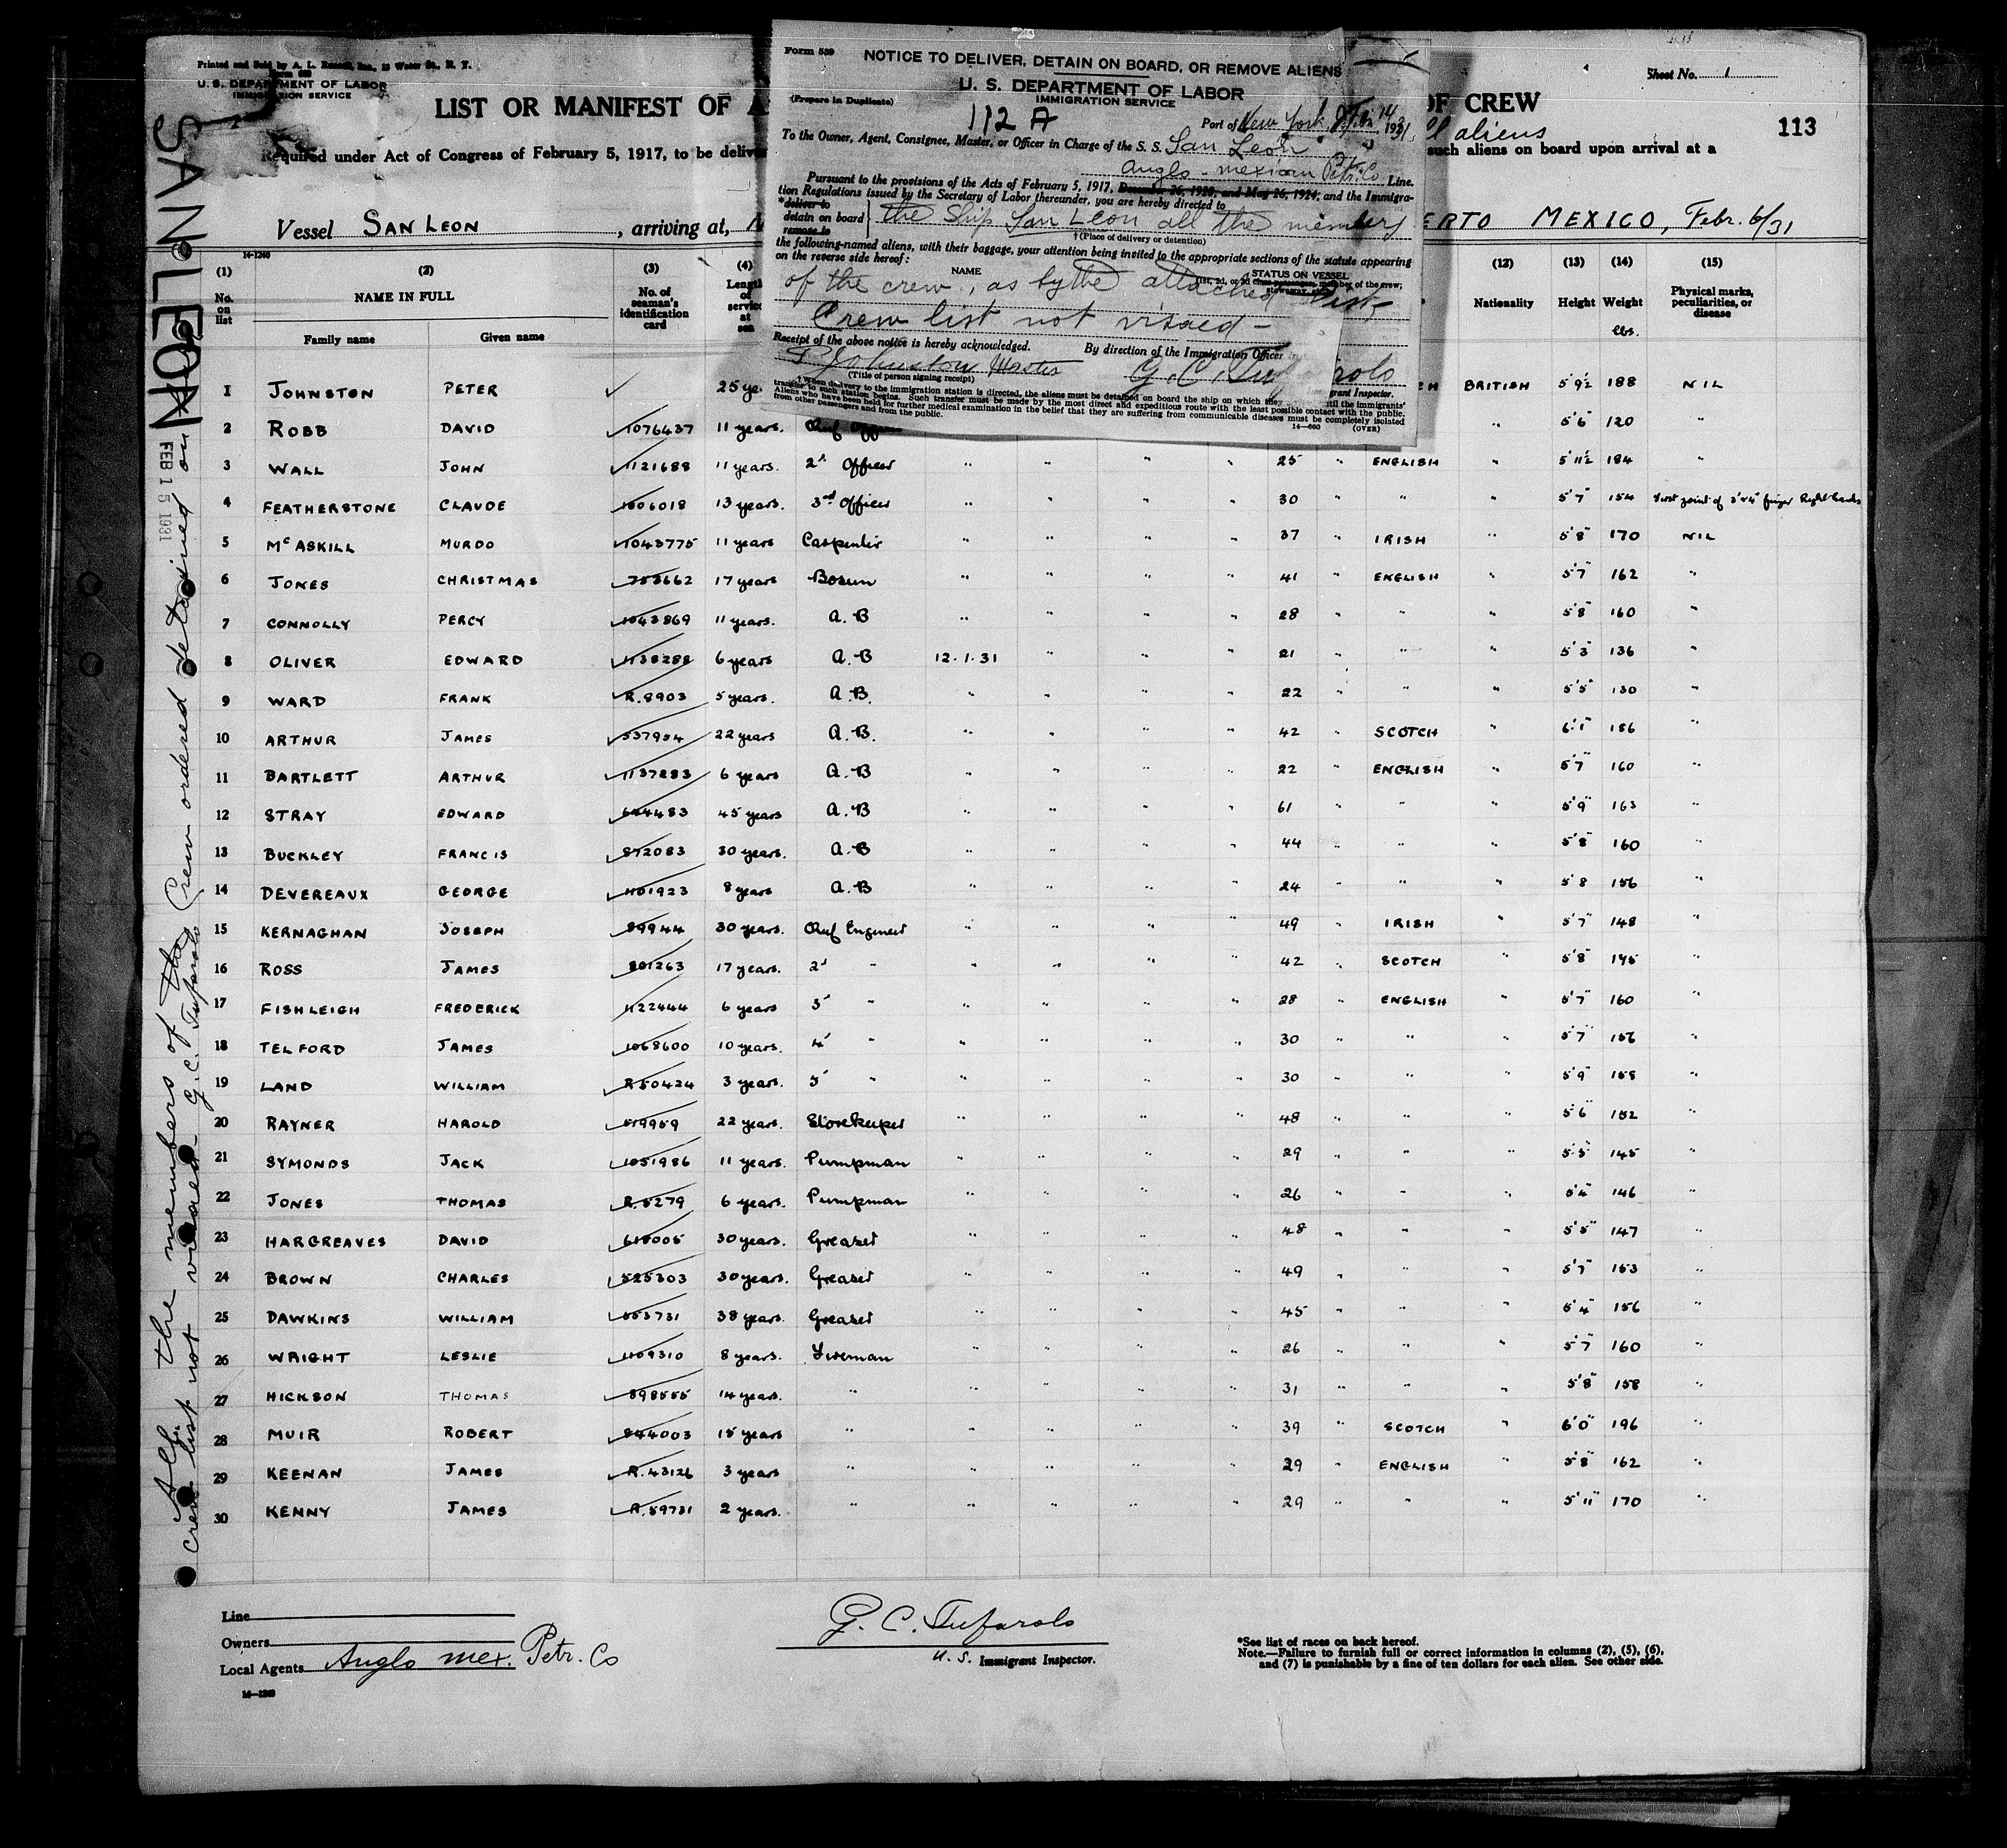 Form 539
NOTICE TO DELIVER, DETAIN ON BOARD, OR REMOVE ALIENS
U. S. DEPARTMENT OF LABOR
IMMIGRATION SERVICE
(Prepare in Duplicate)
112 A
Port of New York, 14, 1931
To the Owner, Agent, Consignee, Master, or Officer in Charge of the S. S. San Leon
Anglo-mexican Petr. Co Line.
Pursuant to the provisions of the Acts of February 5, 1917, December 26, 1920, and May 26, 1924, and the Immigra-
tion Regulations issued by the Secretary of Labor thereunder, you are hereby directed to
*deliver to
detain on board
remove to
the Ship San Leon all the members
†(Place of delivery or detention)
the following-named aliens, with their baggage, your attention being invited to the appropriate sections of the statute appearing
on the reverse side hereof:
NAME
STATUS ON VESSEL
of the crew, as by the attached list-
Crew list not visaed-
Receipt of the above notice is hereby acknowledged.
By direction of the Immigration Officer
P Johnston Master
G. C. Tufarolo
(Title of person signing receipt)
grant Inspector.
†When delivery to the immigration station is directed, the aliens must be detained on board the ship on which they until the immigrants'
transfer to such station begins. Such transfer must be made by the most direct and expeditious route with the least possible contact with the public.
Aliens who have been held for further medical examination in the belief that they are suffering from communicable diseases must be completely isolated
from other passengers and from the public.
14—660
(OVER)
Printed and Sold by A. L. Russell, Inc., 15 Water St., N. Y.
U. S. DEPARTMENT OF LABOR
IMMIGRATION SERVICE
Sheet No. 1
LIST OR MANIFEST OF A
OF CREW
113
ll aliens
Required under Act of Congress of February 5, 1917, to be deliver
such aliens on board upon arrival at a
Vessel SAN LEON, arriving at, N
ERTO MEXICO, Febr. 6/31
14-1240
(1) (2) (3) (4) (12) (13) (14) (15)
No. on list
NAME IN FULL
Family name
Given name
No. of seaman's identification card
Length of service at sea
Nationality
Height
Weight lbs.
Physical marks, peculiarities, or disease
1 JOHNSTON PETER 25 ye BRITISH 5'9½ 188 NIL
2 ROBB DAVID 1076437 11 years. " 5'6" 120 "
3 WALL JOHN 1121688 11 years. 2d Officer " " " " 25 " ENGLISH " 5'11½ 184 "
4 FEATHERSTONE CLAUDE 1006018 13 years. 3rd Officer " " " " 30 " " " 5'7" 154 First point of 3rd & 4th finger Right hand
5 McASKILL MURDO 1043775 11 years Carpenter " " " " 37 " IRISH " 5'8" 170 NIL
6 JONES CHRISTMAS 753662 17 years Bosun " " " " 41 " ENGLISH " 5'7" 162 "
7 CONNOLLY PERCY 1043869 11 years. A.B " " " " 28 " " " 5'8" 160 "
8 OLIVER EDWARD 1138288 6 years A.B 12.1.31 " " " 21 " " " 5'3" 136 "
9 WARD FRANK R.8903 5 years. A.B. " " " " 22 " " " 5'5" 130 "
10 ARTHUR JAMES 537954 22 years A.B. " " " " 42 " SCOTCH " 6'1" 186 "
11 BARTLETT ARTHUR 1137283 6 years A.B " " " " 22 " ENGLISH " 5'7" 160 "
12 STRAY EDWARD 644483 45 years A.B " " " " 61 " " " 5'9" 163 "
13 BUCKLEY FRANCIS 872083 30 years. A.B " " " " 44 " " " 5'8" 160 "
14 DEVEREAUX GEORGE 1101923 8 years A.B " " " " 24 " " " 5'8 156 "
15 KERNAGHAN JOSEPH 89944 30 years. Chief Engineer " " " " 49 " IRISH " 5'7" 148 "
16 ROSS JAMES 801263 17 years. 2d " " " " " 42 " SCOTCH " 5'8" 195 "
17 FISHLEIGH FREDERICK 1122444 6 years 3 " " " " " 28 " ENGLISH " 5'7" 160 "
18 TELFORD JAMES 1068600 10 years. 4 " " " " " 30 " " " 5'7" 156 "
19 LAND WILLIAM R50424 3 years. 5 " " " " " 30 " " " 5'9" 158 "
20 RAYNER HAROLD 519959 22 years. Storekeeper " " " " 48 " " " 5'6" 152 "
21 SYMONDS JACK 1051986 11 years. Pumpman " " " " 29 " " " 5'5" 145 "
22 JONES THOMAS R.5279 6 years. Pumpman " " " " 26 " " " 5'4" 146 "
23 HARGREAVES DAVID 618005 30 years. Greaser " " " " 48 " " " 5'5" 147 "
24 BROWN CHARLES 525303 30 years. Greaser " " " " 49 " " " 5'7" 153 "
25 DAWKINS WILLIAM 553731 38 years. Greaser " " " " 45 " " " 5'4" 156 "
26 WRIGHT LESLIE 1109310 8 years. Fireman " " " " 26 " " " 5'7 160 "
27 HICKSON THOMAS 898555 14 years. " " " " " 31 " " " 5'8" 158 "
28 MUIR ROBERT 844003 15 years " " " " " 39 " SCOTCH " 6'0" 196 "
29 KEENAN JAMES R.43126 3 years " " " " " 29 " ENGLISH " 5'8" 162 "
30 KENNY JAMES R.59731 2 years. " " " " " 29 " " " 5'11" 170 "
SAN LEON
FEB 15 1931
All the members of the Crew ordered detained on
crew list not visaed- G. C. Tufarolo
Line
Owners
Local Agents Anglo Mex. Petr. Co
G. C. Tufarolo
U. S. Immigrant Inspector.
*See list of races on back hereof.
Note.—Failure to furnish full or correct information in columns (2), (5), (6),
and (7) is punishable by a fine of ten dollars for each alien. See other side.